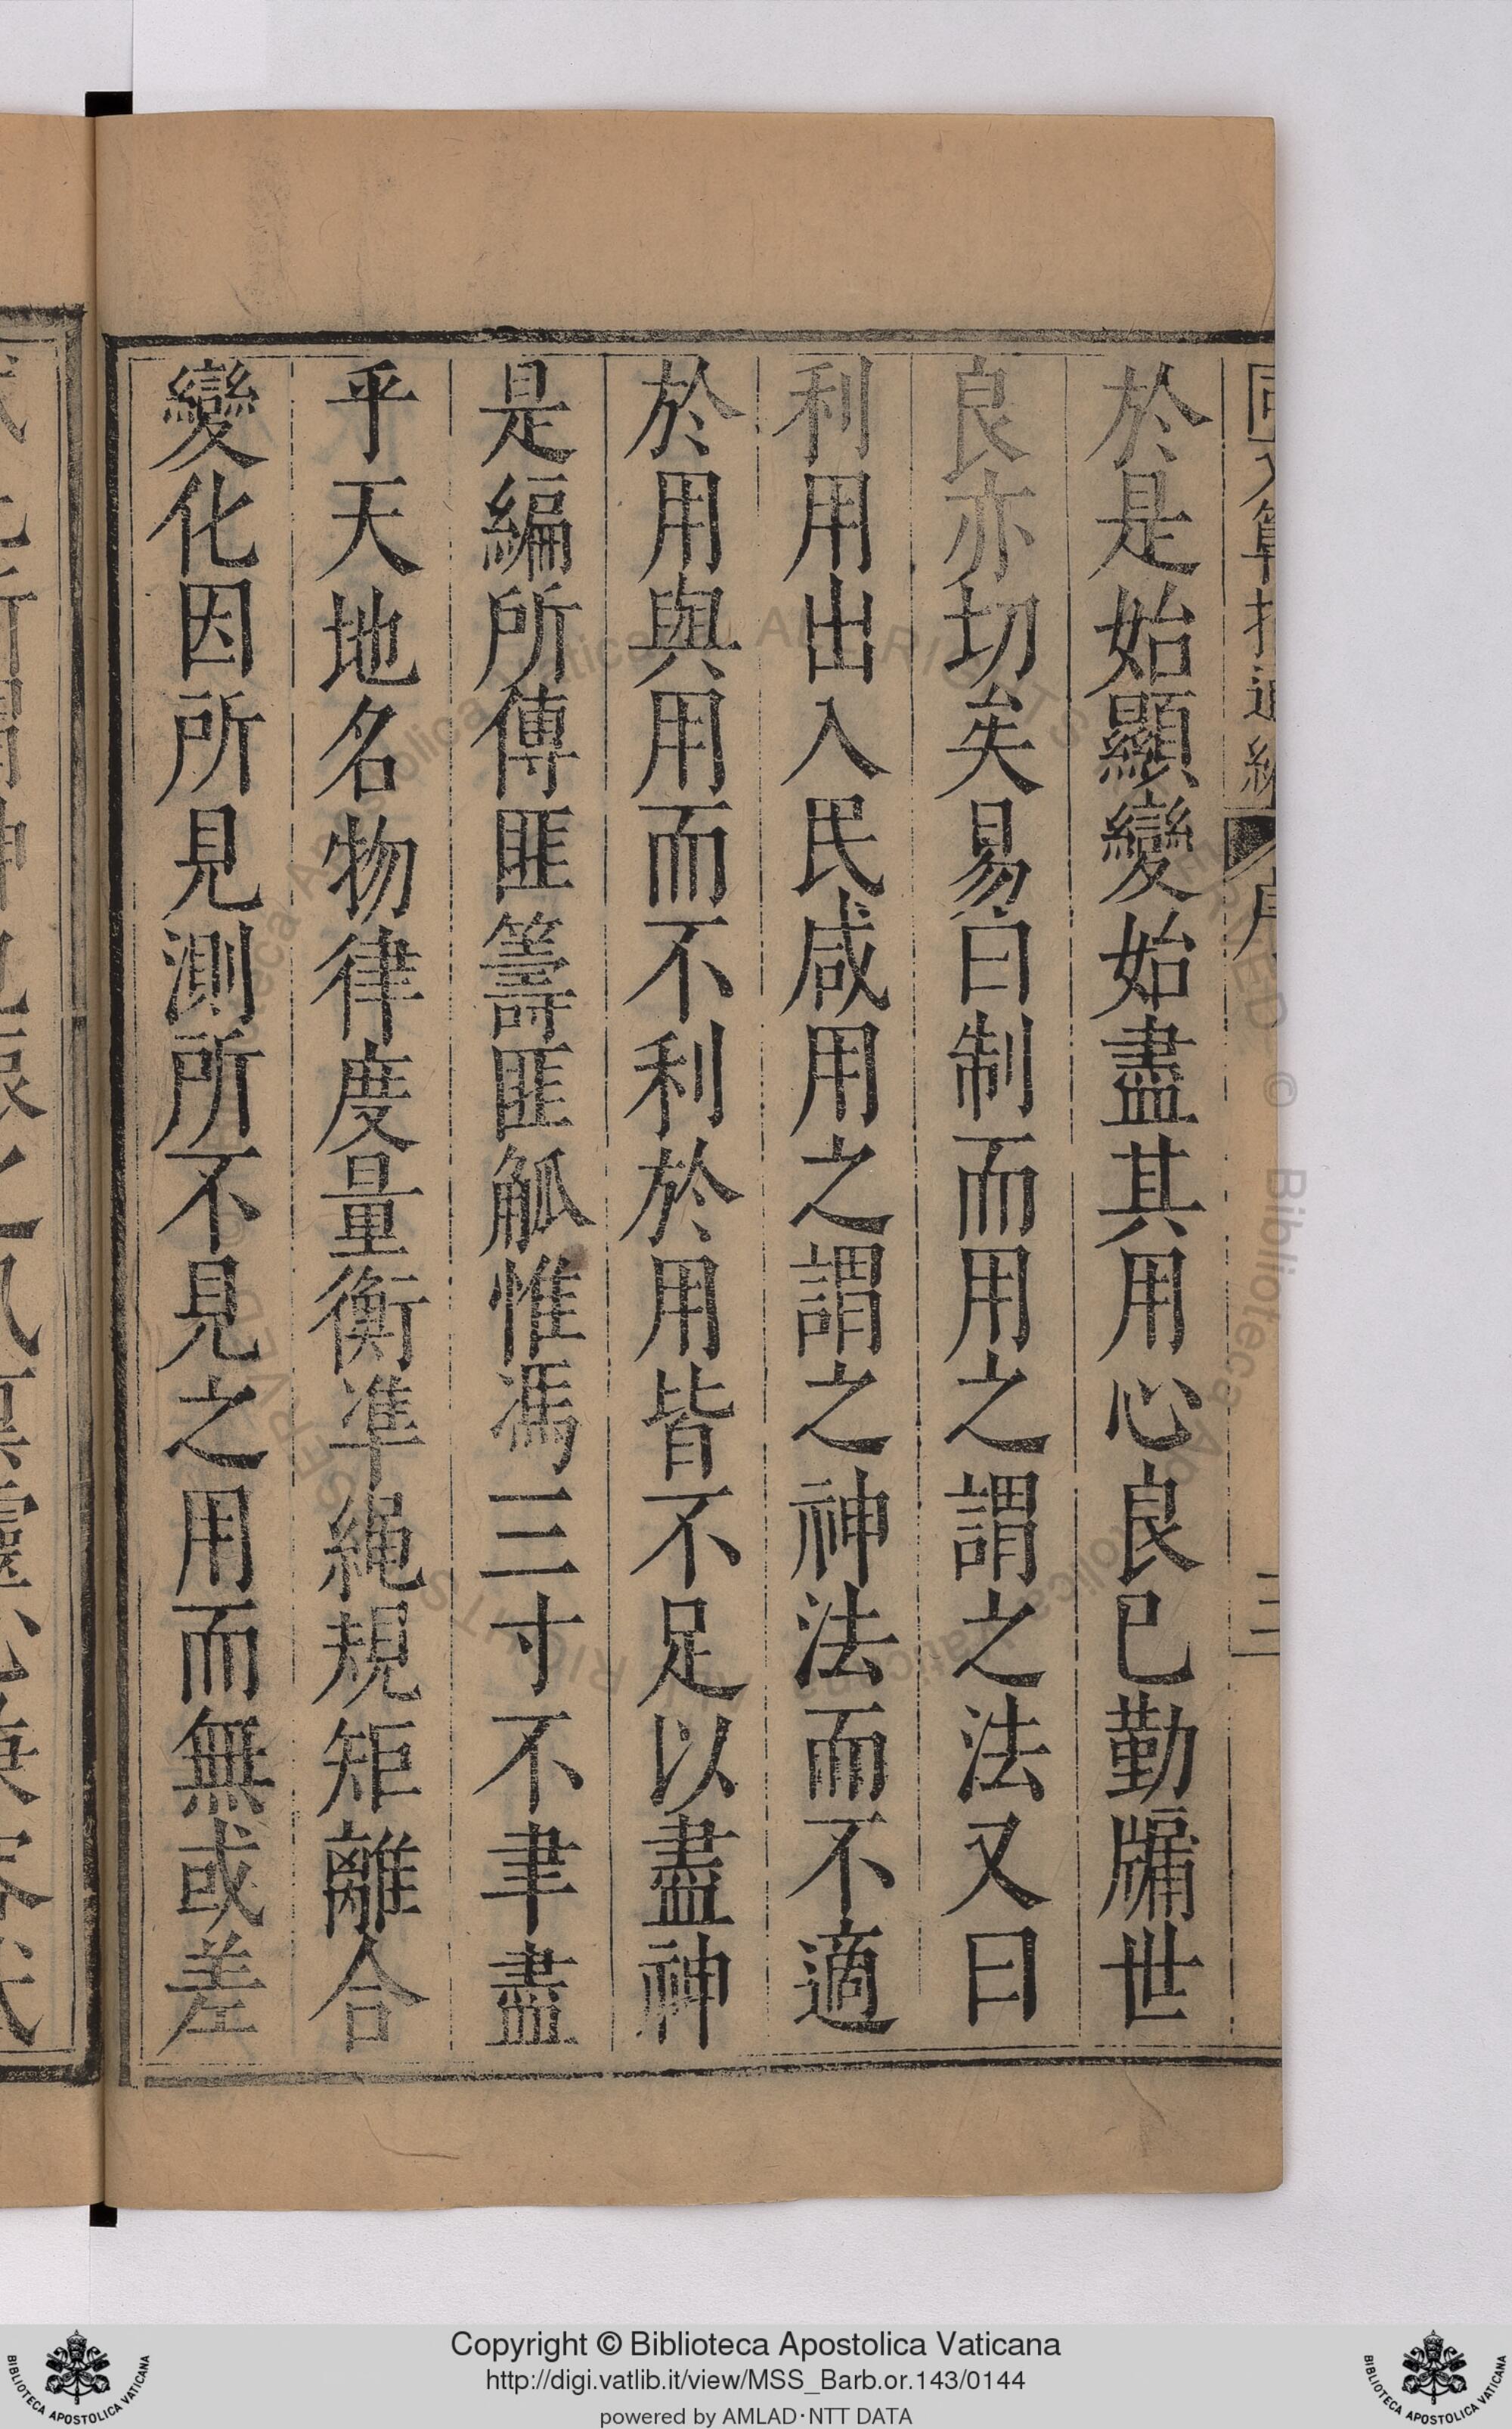 於是始顯變始盡其用心良已勤牖世
良亦切矣易曰制而用之謂之法又曰
利用出入民咸用之謂之神法而不適
於用與用而不利於用皆不足以盡神
是編所傳匪籌匪觚惟馮三寸不聿盡
乎天地名物律度量衡準繩規矩離合
變化因所見測所不見之用而無或差
Copyright © Biblioteca Apostolica Vaticana
http://digi.vatlib.it/view/MSS_Barb.or.143/0144
powered by AMLAD·NTT DATA
BIBLIOTECA APOSTOLICA VATICANA
BIBLIOTECA APOSTOLICA VATICANA